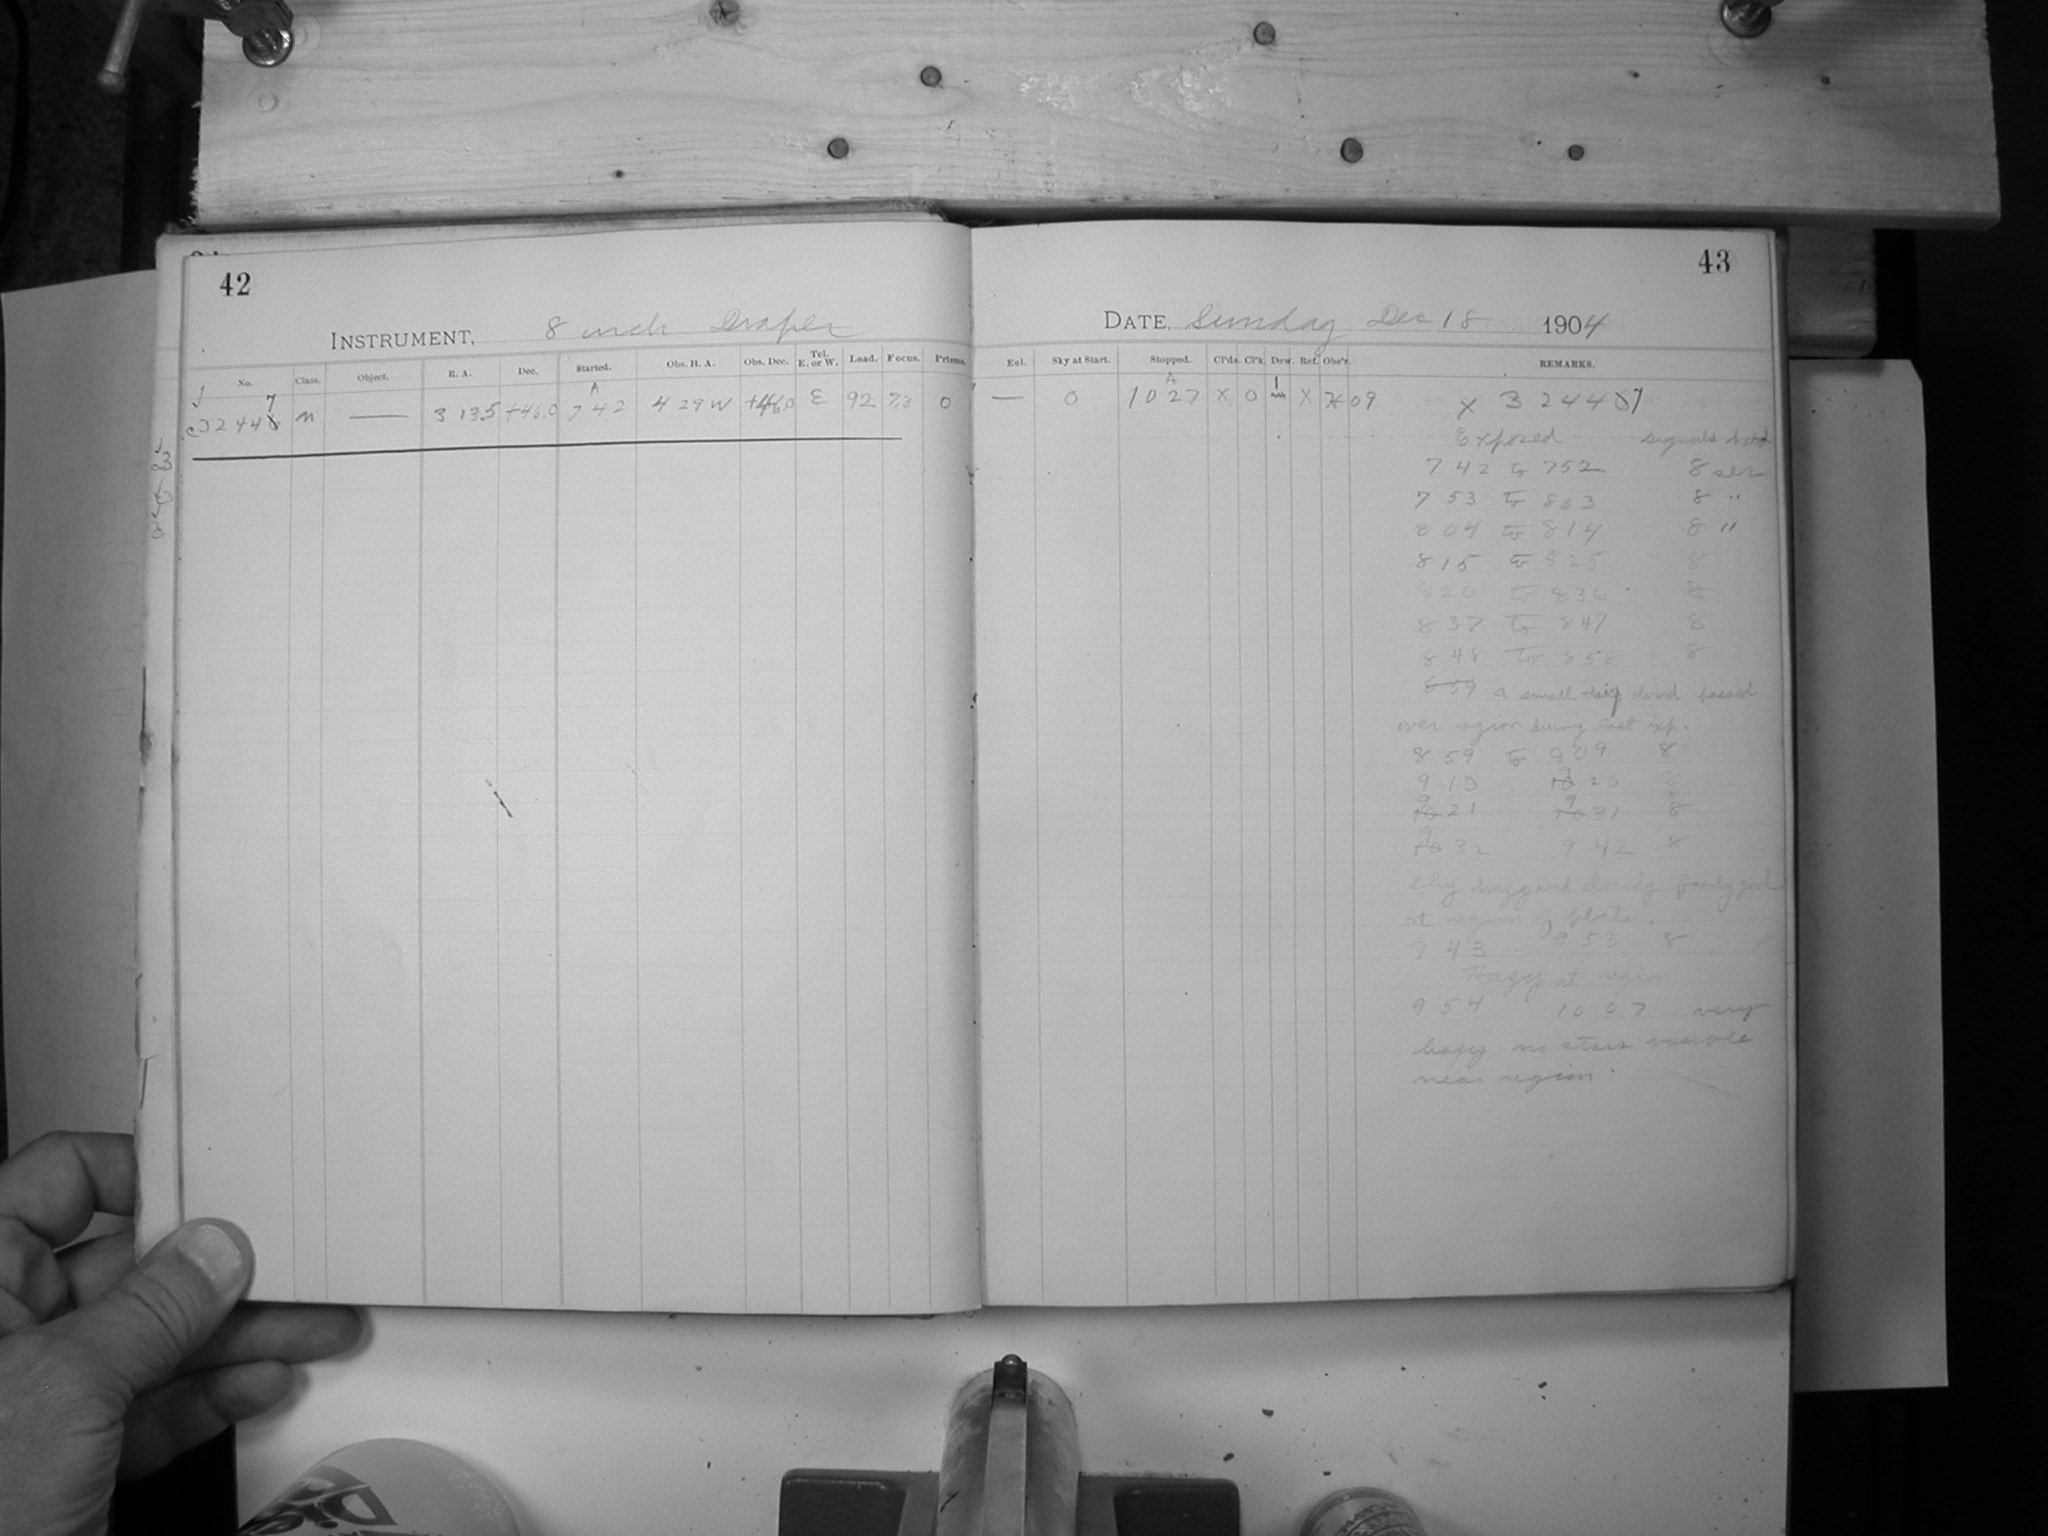 42
INSTRUMENT, 8 inch Draper
No. Class. Object. R. A. Dec. Started. Obs. H. A. Obs. Dec. Tel. E. or W. Load. Focus. Prisms.
A
7
3244 m — 3 13.5 +46.0 7 42 4 29 W +46.0 E 92 7.3 0
43
DATE, Sunday Dec 18 1904
Enl. Sky at Start. Stopped. Cl'ds. Cl'k. Dew. Ref. Obs'r. REMARKS.
A 1
— 0 10 27 X 0 X 09 X 3 2 4 4 7
Exposed signals
7 42 to 7 52 8 sec
7 53 to 8 03 8 "
8 04 to 8 14 8 "
8 15 to 8 25 8
8 26 to 8 36 8
8 37 to 8 47 8
8 48 to 8 58 8
6 59 a small cloud passed
over region during last exp.
8 59 to 9 09 8
9 10 9 20
9 21 9 31 8
9 32 9 42 8
Sky hazy and cloudy fairly good
at region of plate.
9 43 9 53 8
Hazy at region
9 54 10 07 very
hazy no stars visible
near region.
Die